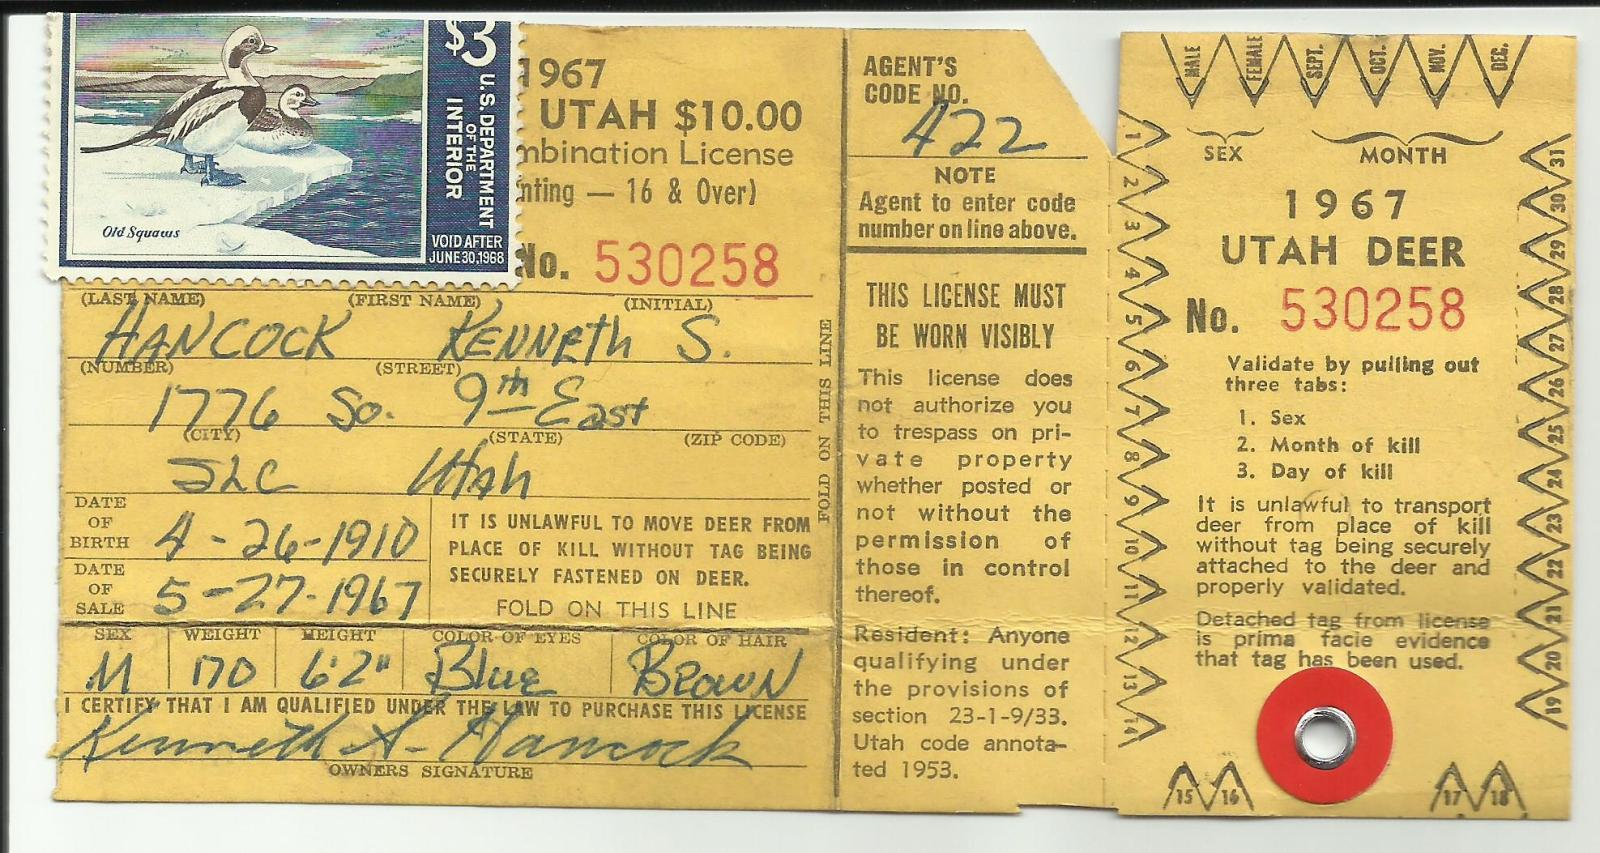 $3
U.S. DEPARTMENT
OF THE
INTERIOR
VOID AFTER
JUNE 30, 1968
Old Squaws
1967
UTAH $10.00
mbination License
nting — 16 & Over)
No. 530258
(LAST NAME) (FIRST NAME) (INITIAL)
HANCOCK KENNETH S.
(NUMBER) (STREET)
1776 So. 9th East
(CITY) (STATE) (ZIP CODE)
SLC Utah
DATE
OF
BIRTH 4-26-1910
DATE
OF
SALE 5-27-1967
IT IS UNLAWFUL TO MOVE DEER FROM
PLACE OF KILL WITHOUT TAG BEING
SECURELY FASTENED ON DEER.
FOLD ON THIS LINE
SEX WEIGHT HEIGHT COLOR OF EYES COLOR OF HAIR
M 170 6'2" Blue BROWN
I CERTIFY THAT I AM QUALIFIED UNDER THE LAW TO PURCHASE THIS LICENSE
Kenneth S. Hancock
OWNERS SIGNATURE
FOLD ON THIS LINE
AGENT'S
CODE NO.
A22
NOTE
Agent to enter code
number on line above.
THIS LICENSE MUST
BE WORN VISIBLY
This license does
not authorize you
to trespass on pri-
vate property
whether posted or
not without the
permission of
those in control
thereof.
Resident: Anyone
qualifying under
the provisions of
section 23-1-9/33.
Utah code annota-
ted 1953.
MALE FEMALE SEPT. OCT. NOV. DEC.
SEX MONTH
1967
UTAH DEER
No. 530258
Validate by pulling out
three tabs:
1. Sex
2. Month of kill
3. Day of kill
It is unlawful to transport
deer from place of kill
without tag being securely
attached to the deer and
properly validated.
Detached tag from license
is prima facie evidence
that tag has been used.
1
2
3
4
5
6
7
8
9
10
11
12
13
14
15 16 17 18
19
20
21
22
23
24
25
26
27
28
29
30
31